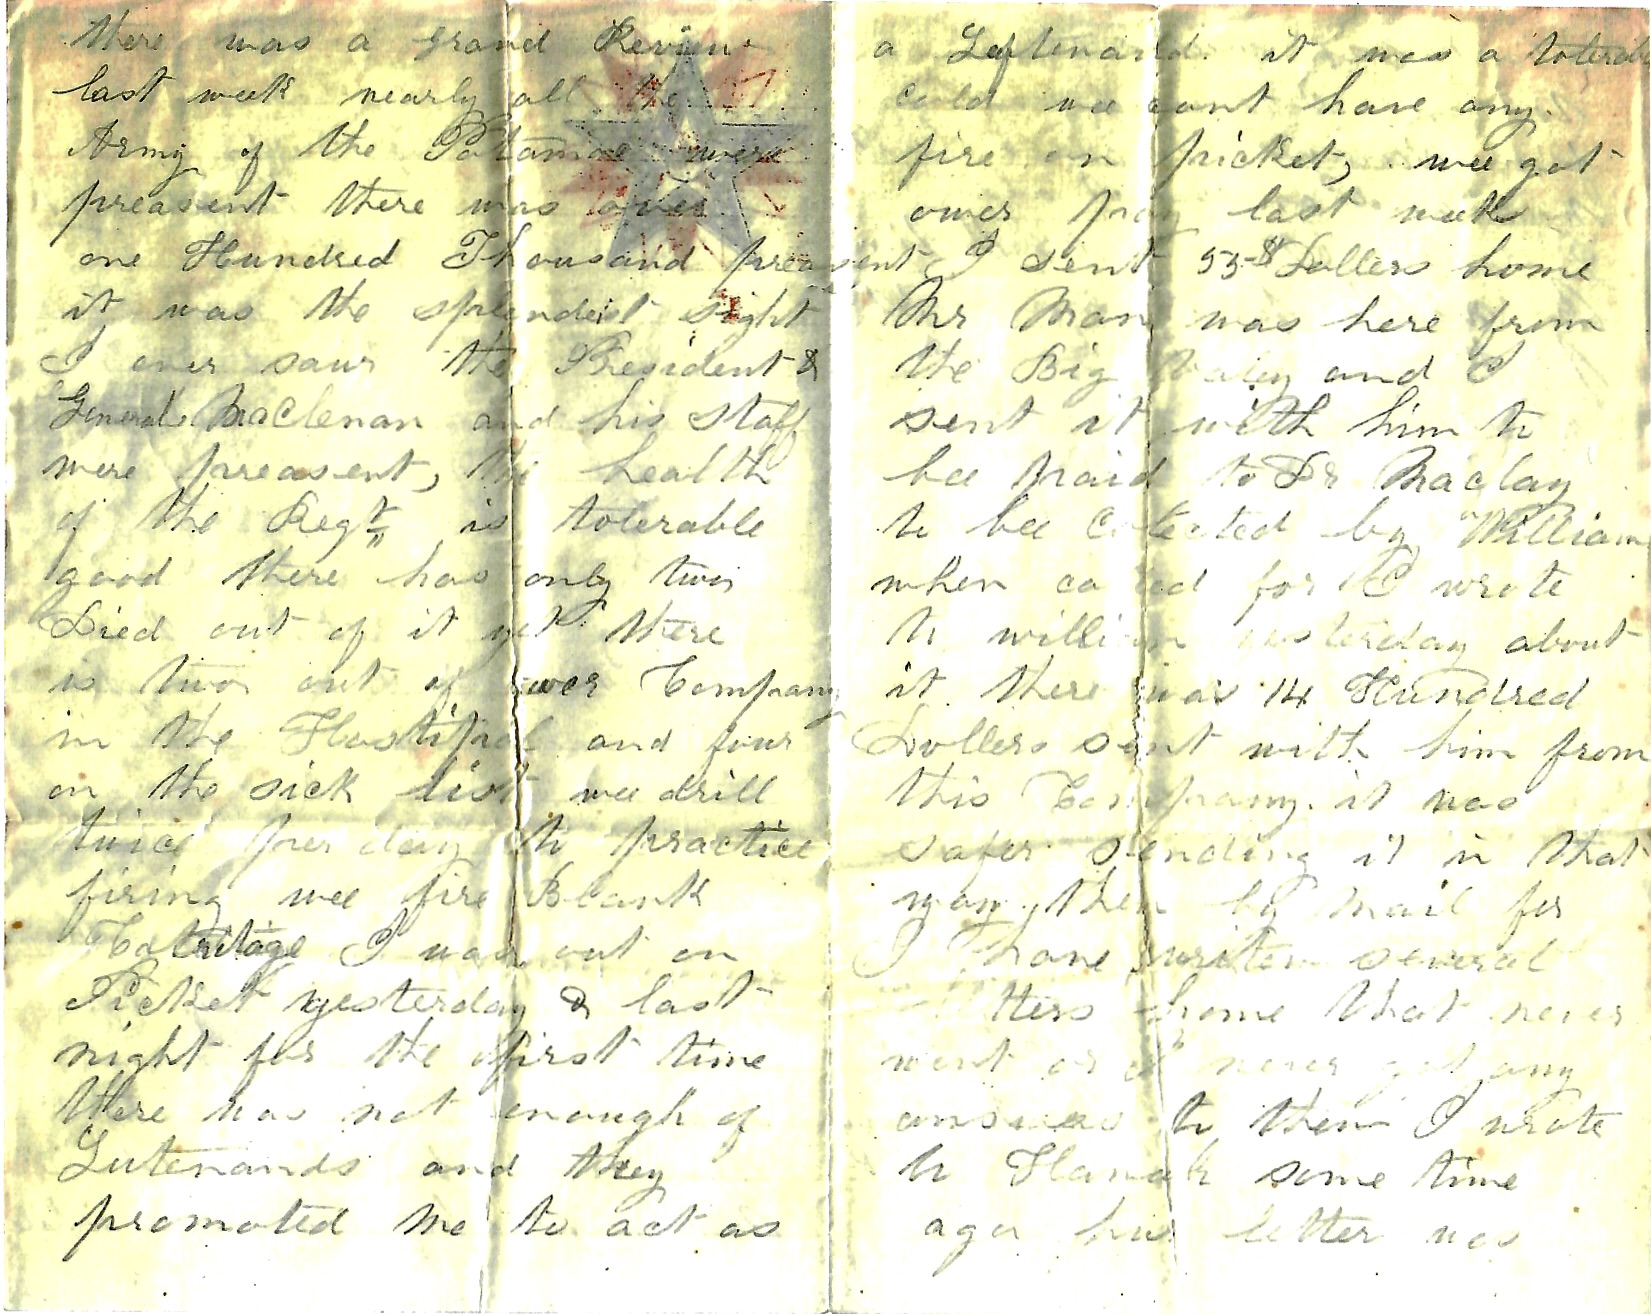 there was a grand Review
last week nearly all the
Army of the Potamac were
preasent there was over
one Hundred Thousand preasent
it was the splendist sight
I ever saw the President &
General MacClenan and his Staff
were preasent, the health
of the Regt is tolerable
good there has only two
Died out of it yet there
is two out of ower Company
in the Hostipal and four
on the sick list wee drill
twice per day to practice
firing wee fire Blank
Catritage I was out on
Picket yesterday & last
night for the first time
there was not enough of
Lutenands and they
promoted me to act as
a Leftenand it was a
cold wee cant have any
fire on picket, wee got
ower pay last week
I sent 53 $ Dollers home
Mr Mann was here from
the Big Valey and I
sent it with him to
bee paid to Dr Maclay
to bee Colected by William
when called for I wrote
to william yesterday about
it there was 14 Hundred
Dollers sent with him from
this Company it was
safer sending it in that
way then by mail for
I have writen several
letters home that never
went or I never got any
answer to them I wrote
to Hanah some time
ago her letter was